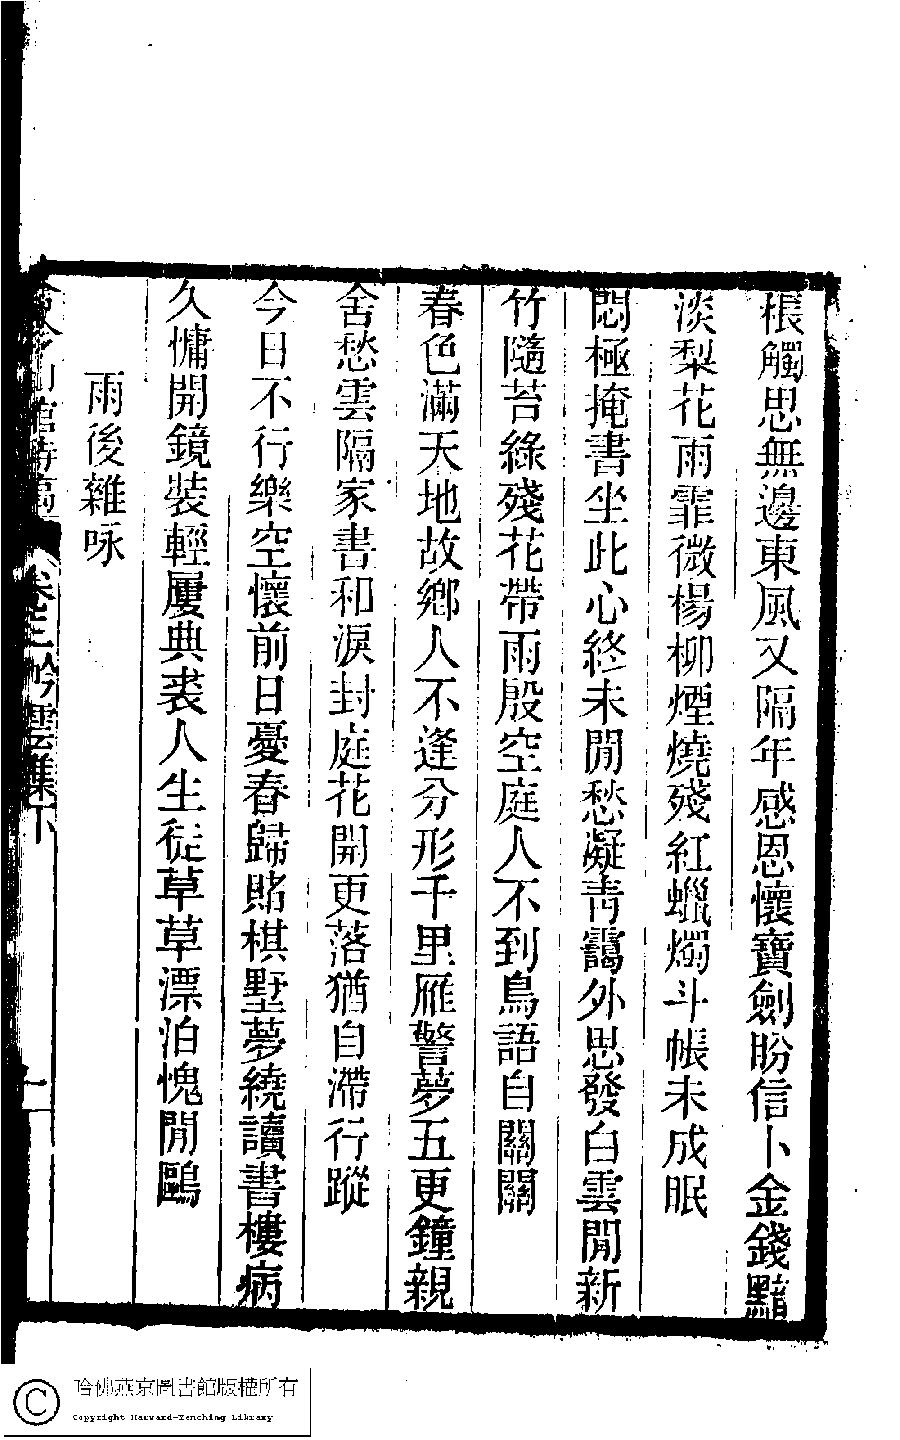 棖觸思無邊東風又隔年感恩懷寶劍盼信卜金錢黯
淡梨花雨霏微楊柳煙燒殘紅蠟燭斗帳未成眠
悶極掩書坐此心終未閒愁凝青靄外思發白雲閒新
竹隨苔綠殘花帶雨殷空庭人不到鳥語自關關
春色滿天地故鄉人不逢分形千里雁警夢五更鐘親
舍愁雲隔家書和淚封庭花開更落猶自滯行蹤
今日不行樂空懷前日憂春歸賭棋墅夢繞讀書樓病
久慵開鏡裝輕屢典裘人生徒草草漂泊愧閒鷗
雨後雜咏
山館詩稿 卷三 吟雲集下
哈佛燕京圖書館版權所有
Copyright Harvard-Yenching Library